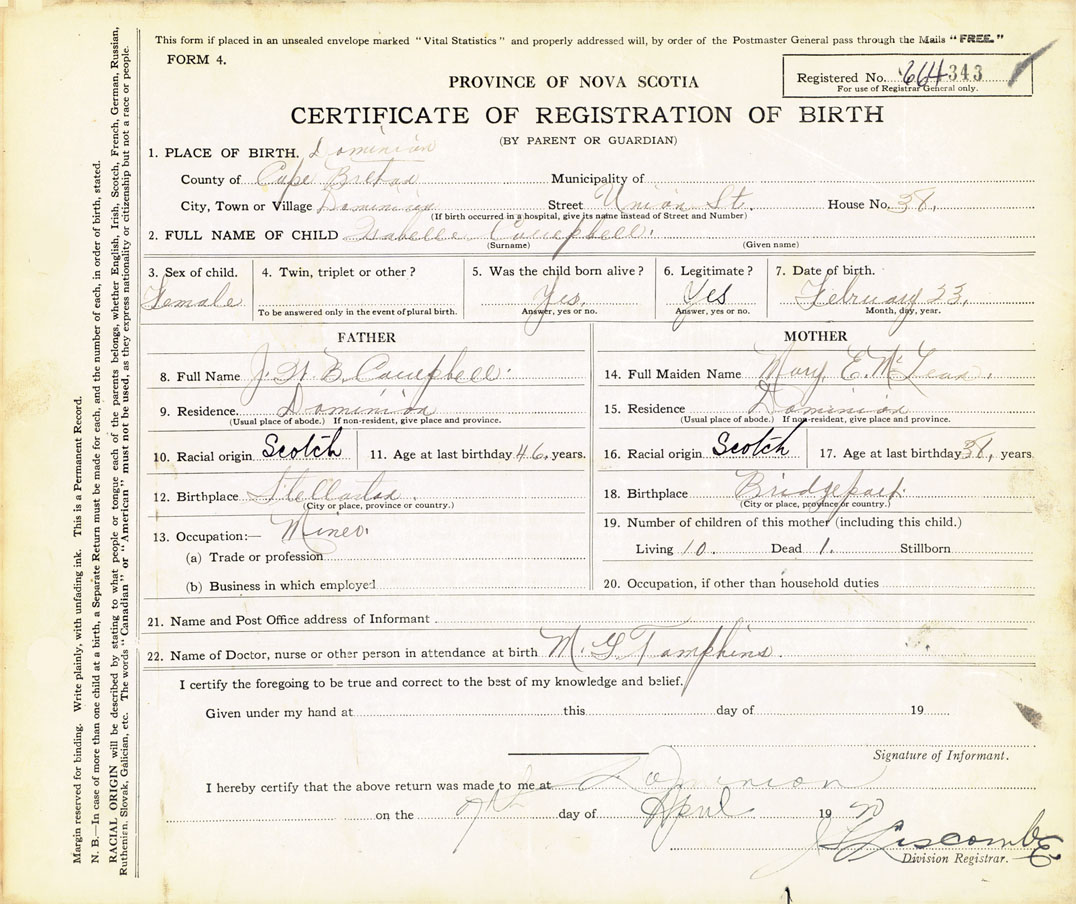 This form if placed in an unsealed envelope marked "Vital Statistics" and properly addressed will, by order of the Postmaster General pass through the Mails "FREE."
FORM 4.
Registered No. 664343
For use of Registrar General only.
PROVINCE OF NOVA SCOTIA
CERTIFICATE OF REGISTRATION OF BIRTH
(BY PARENT OR GUARDIAN)
1. PLACE OF BIRTH. Dominion
County of Cape Breton Municipality of
City, Town or Village Dominion Street Union St. House No. 38.
(If birth occurred in a hospital, give its name instead of Street and Number)
2. FULL NAME OF CHILD Isabelle Campbell.
(Surname) (Given name)
3. Sex of child. Female
4. Twin, triplet or other?
To be answered only in the event of plural birth.
5. Was the child born alive? Yes.
Answer, yes or no.
6. Legitimate? Yes
Answer, yes or no.
7. Date of birth. February 23.
Month, day, year.
FATHER
8. Full Name J. W. B. Campbell.
9. Residence. Dominion
(Usual place of abode.) If non-resident, give place and province.
10. Racial origin Scotch 11. Age at last birthday 46. years.
12. Birthplace Stellarton.
(City or place, province or country.)
13. Occupation:— Miner.
(a) Trade or profession
(b) Business in which employed
MOTHER
14. Full Maiden Name Mary E. McLean.
15. Residence Dominion
(Usual place of abode.) If non-resident, give place and province.
16. Racial origin Scotch 17. Age at last birthday 38, years
18. Birthplace Bridgeport.
(City or place, province or country.)
19. Number of children of this mother (including this child.)
Living 10. Dead 1. Stillborn
20. Occupation, if other than household duties
21. Name and Post Office address of Informant
22. Name of Doctor, nurse or other person in attendance at birth M. G. Tompkins.
I certify the foregoing to be true and correct to the best of my knowledge and belief.
Given under my hand at this day of 19
Signature of Informant.
I hereby certify that the above return was made to me at Dominion
on the 7th day of April 19
Liscombe
Division Registrar.
Margin reserved for binding. Write plainly, with unfading ink. This is a Permanent Record.
N. B.—In case of more than one child at a birth, a Separate Return must be made for each, and the number of each, in order of birth, stated.
RACIAL ORIGIN will be described by stating to what people or tongue each of the parents belongs, whether English, Irish, Scotch, French, German, Russian,
Ruthenian, Slovak, Galician, etc. The words "Canadian" or "American" must not be used, as they express nationality or citizenship but not a race or people.